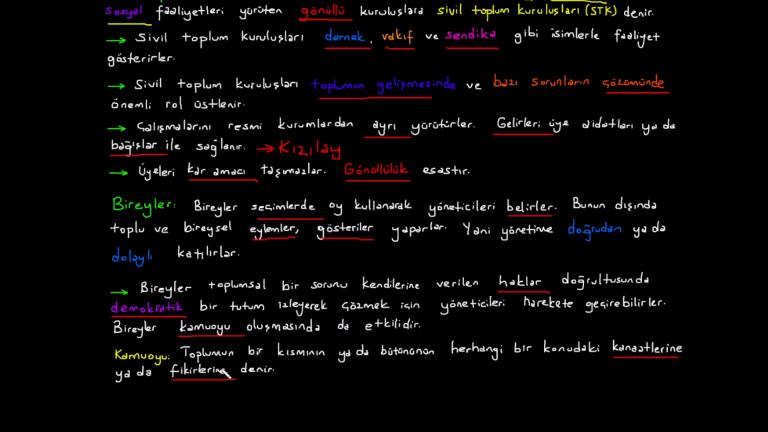 sosyal faaliyetleri yürüten gönüllü kuruluşlara sivil toplum kuruluşları (STK) denir.
→ Sivil toplum kuruluşları dernek, vakıf ve sendika gibi isimlerle faaliyet
gösterirler.
→ Sivil toplum kuruluşları toplumun gelişmesinde ve bazı sorunların çözümünde
önemli rol üstlenir.
→ Çalışmalarını resmi kurumlardan ayrı yürütürler. Gelirleri üye aidatları ya da
bağışlar ile sağlanır. → Kızılay
→ Üyeleri kar amacı taşımazlar. Gönüllülük esastır.
Bireyler: Bireyler seçimlerde oy kullanarak yöneticileri belirler. Bunun dışında
toplu ve bireysel eylemler, gösteriler yaparlar. Yani yönetime doğrudan ya da
dolaylı katılırlar.
→ Bireyler toplumsal bir sorunu kendilerine verilen haklar doğrultusunda
demokratik bir tutum izleyerek çözmek için yöneticileri harekete geçirebilirler.
Bireyler kamuoyu oluşmasında da etkilidir.
Kamuoyu: Toplumun bir kısmının ya da bütününün herhangi bir konudaki kanaatlerine
ya da fikirlerine denir.